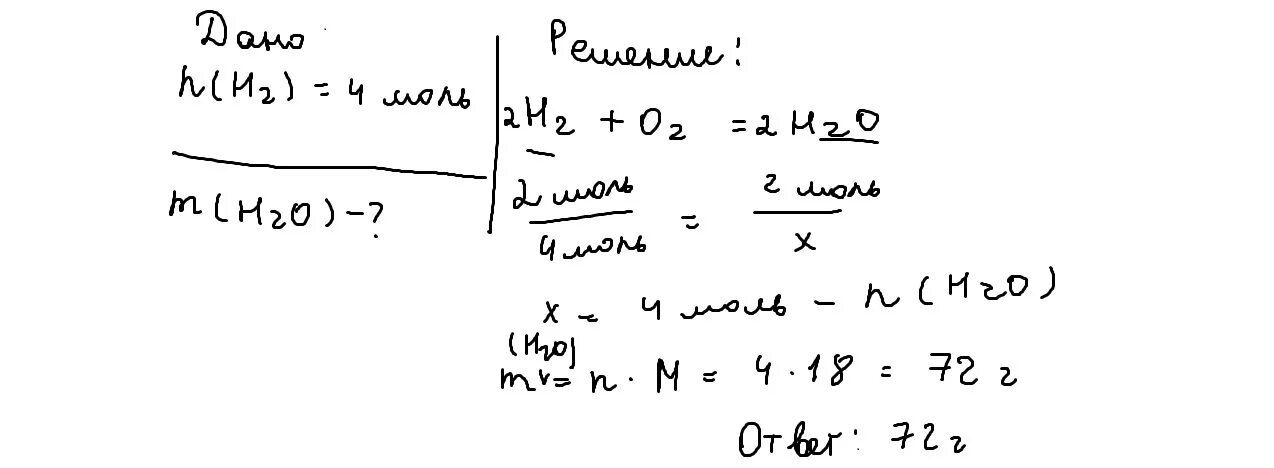 Дано
n(H₂) = 4 моль
m(H₂O) - ?
Решение:
2H₂ + O₂ = 2H₂O
2 моль / 4 моль = 2 моль / x
x = 4 моль - n(H₂O)
(H₂O)
m = n · M = 4 · 18 = 72 г
Ответ: 72 г